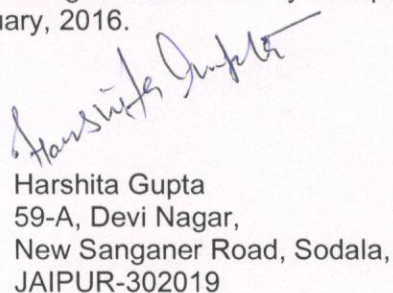 uary, 2016.
Harshita Gupta
Harshita Gupta
59-A, Devi Nagar,
New Sanganer Road, Sodala,
JAIPUR-302019